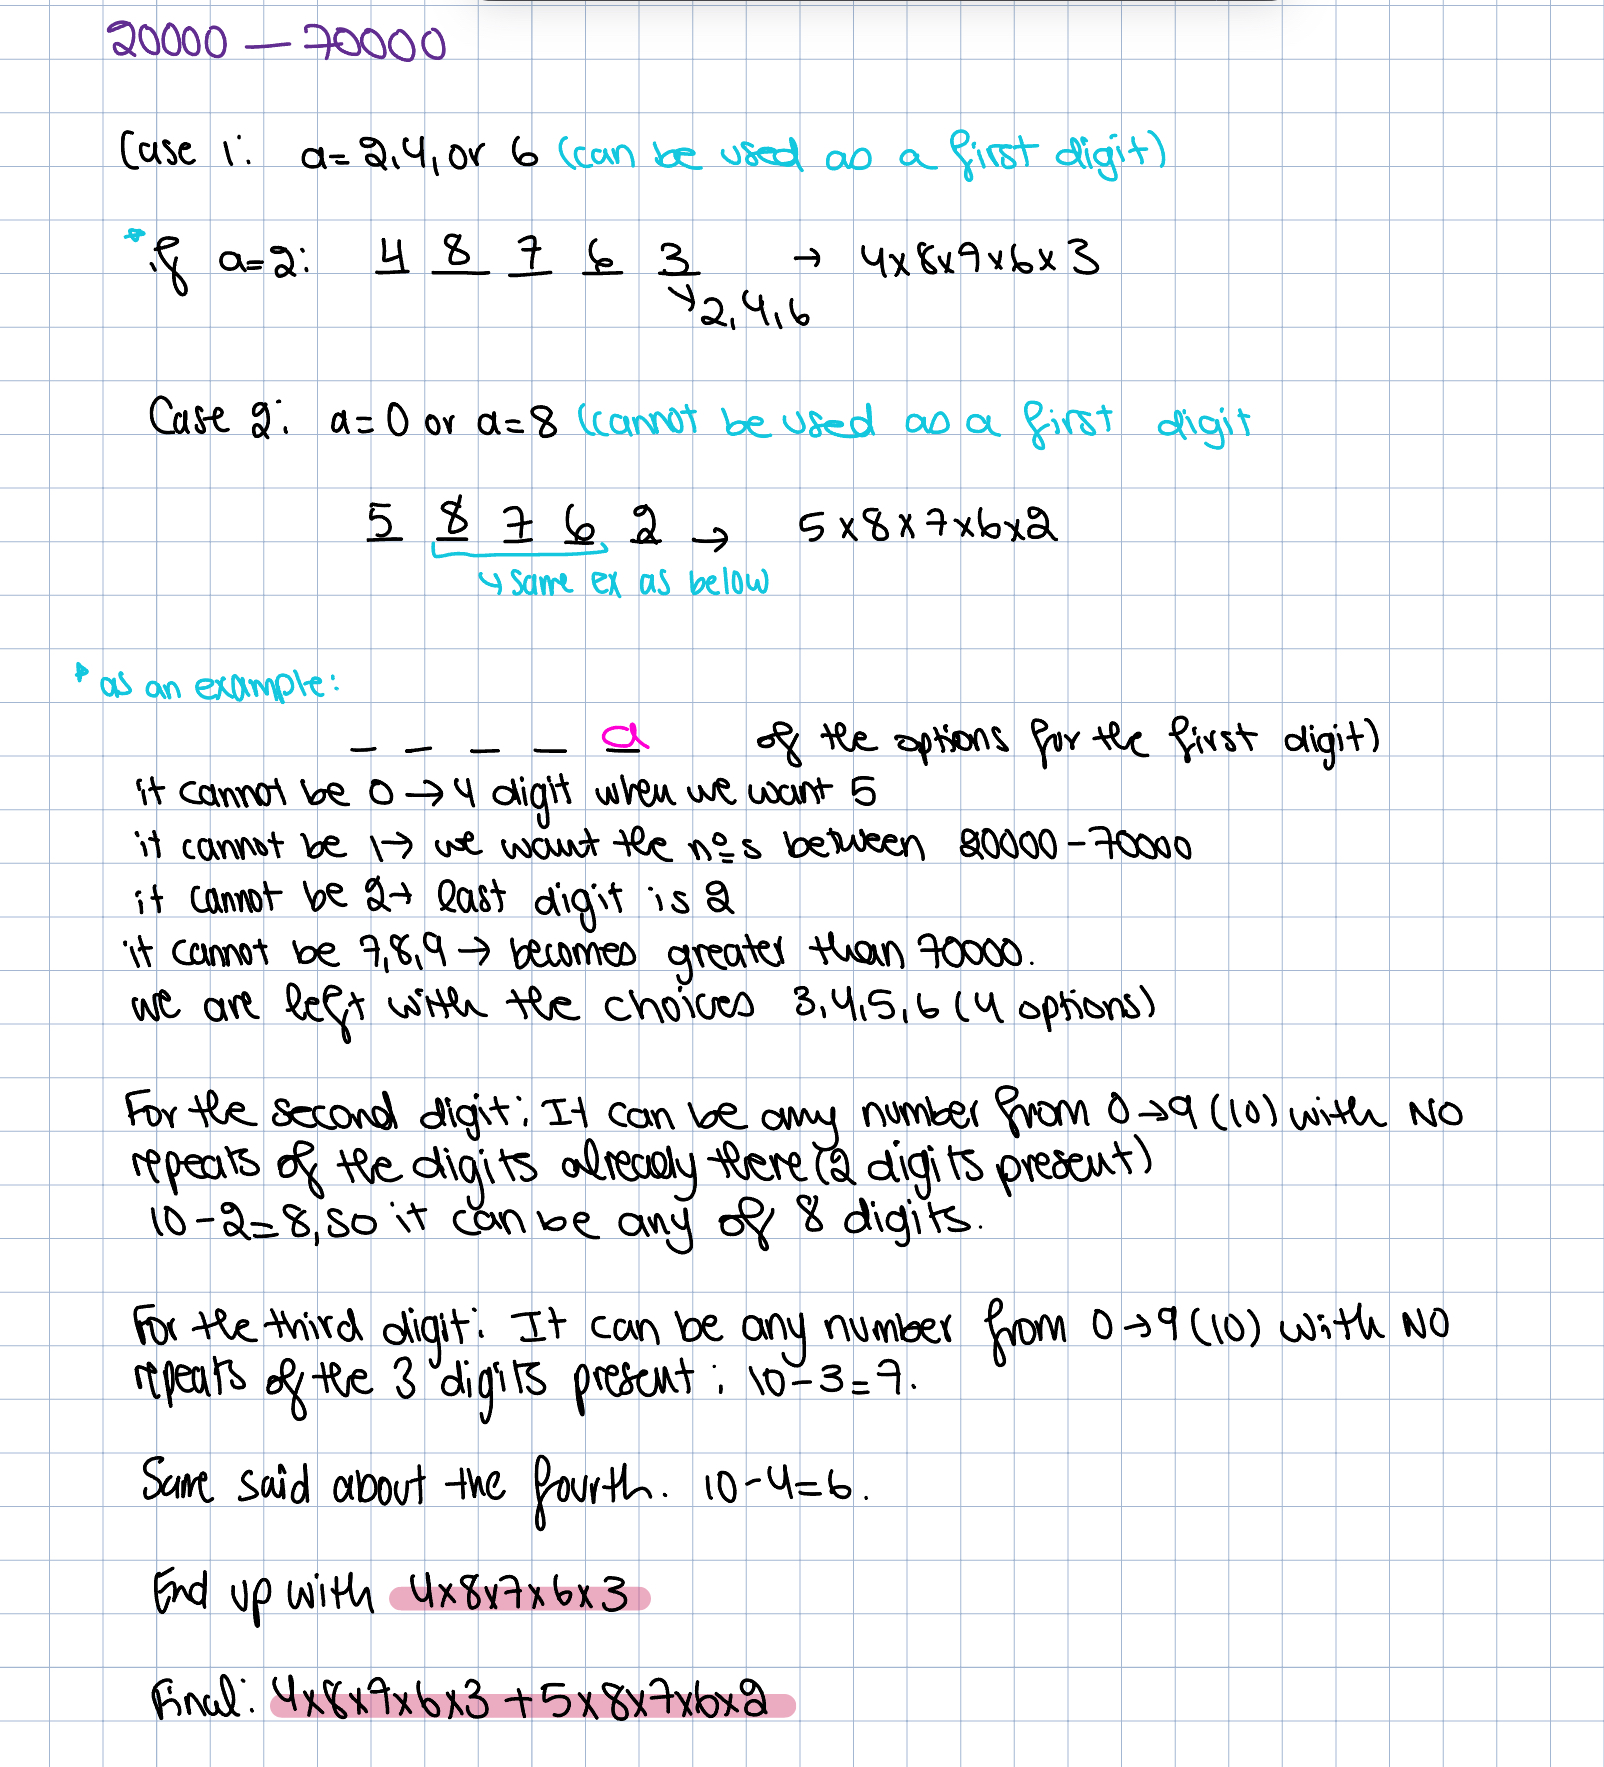 20000 — 70000
Case 1: a=2,4, or 6 (can be used as a first digit)
* if a=2: 4 8 7 6 3 → 4x8x7x6x3
↳2,4,6
Case 2: a=0 or a=8 (cannot be used as a first digit
5 8 7 6 2 → 5x8x7x6x2
↳ same ex as below
* as an example:
_ _ _ _ a of the options for the first digit)
it cannot be 0 → 4 digit when we want 5
it cannot be 1→ we want the nºs between 20000-70000
it cannot be 2→ last digit is 2
it cannot be 7,8,9 → becomes greater than 70000.
we are left with the choices 3,4,5,6 (4 options)
For the second digit: It can be any number from 0→9 (10) with NO
repeats of the digits already there (2 digits present)
10-2=8, so it can be any of 8 digits.
For the third digit: It can be any number from 0→9 (10) with NO
repeats of the 3 digits present: 10-3=7.
Same said about the fourth. 10-4=6.
End up with 4x8x7x6x3
Final: 4x8x7x6x3 + 5x8x7x6x2